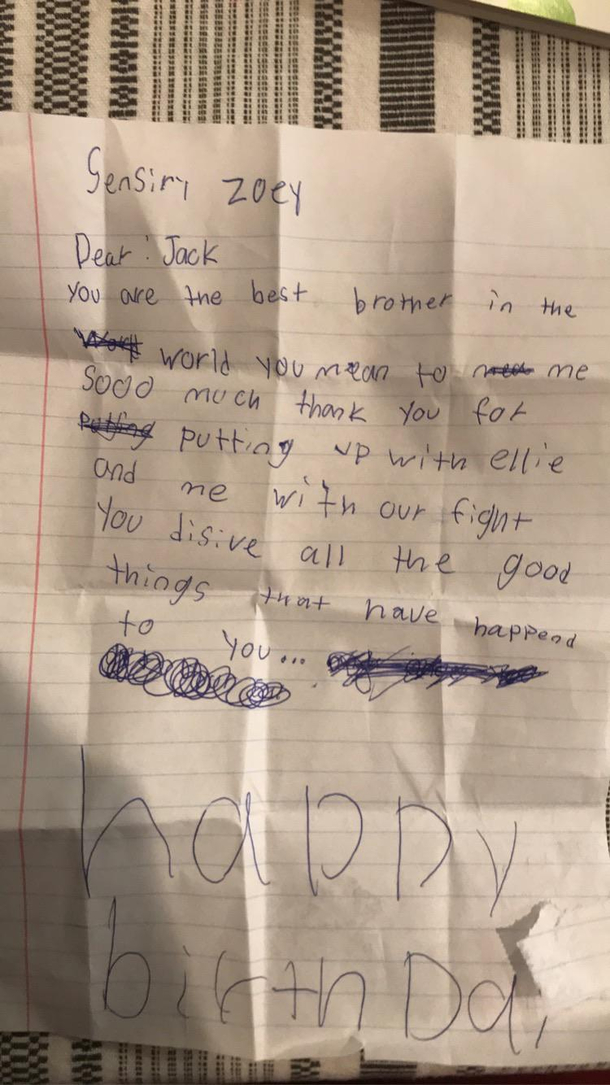 Sensiry Zoey
Dear: Jack
You are the best brother in the
world you mean to me
Sooo much thank you for
putting up with ellie
and me with our fight
You disive all the good
things that have happend
to you...
happy
birthDa